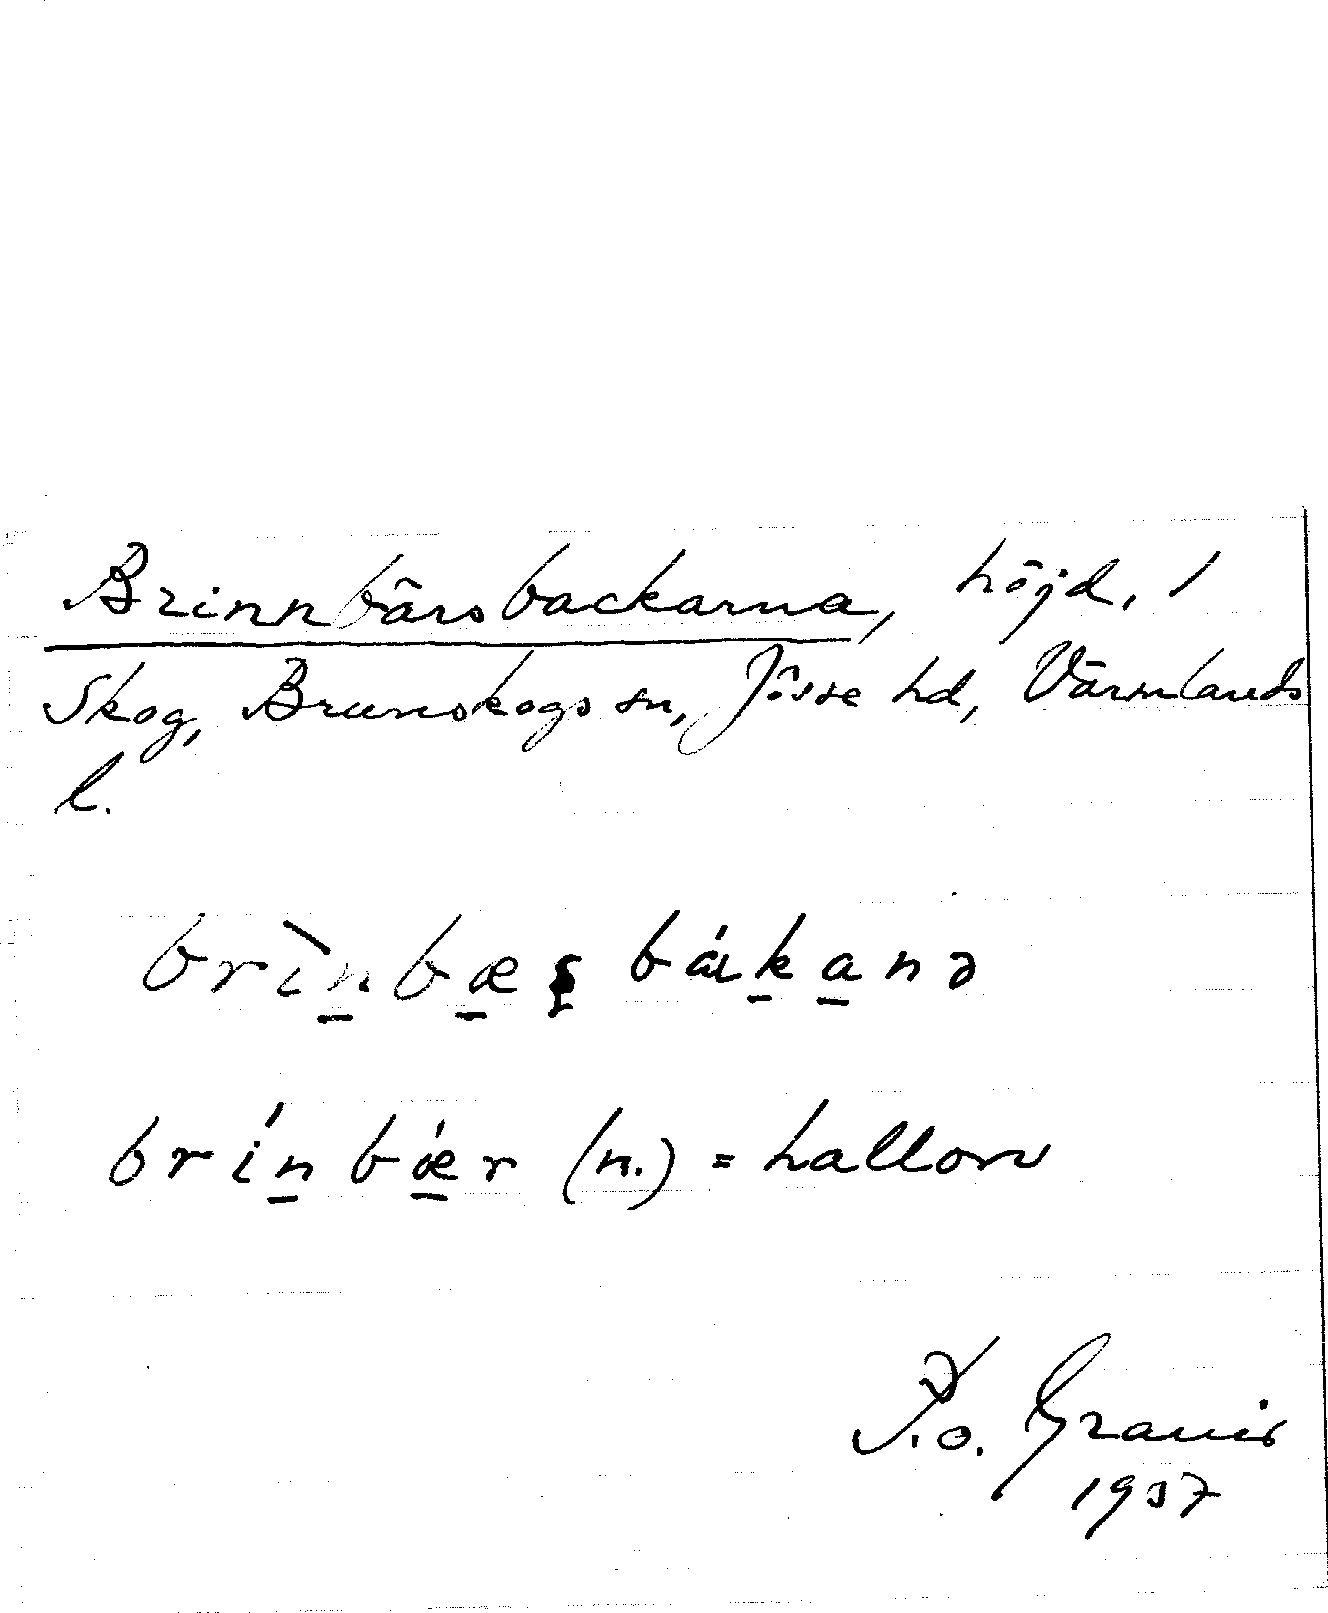 Brinnbärsbackarna, höjd, i
Skog, Brunskogs sn, Jösse hd, Värmlands
l.
brìn̲bæ̲ş bák̲a̲nə
brín̲bǽ̲r (n.) = hallon
P.o. Granir
1937